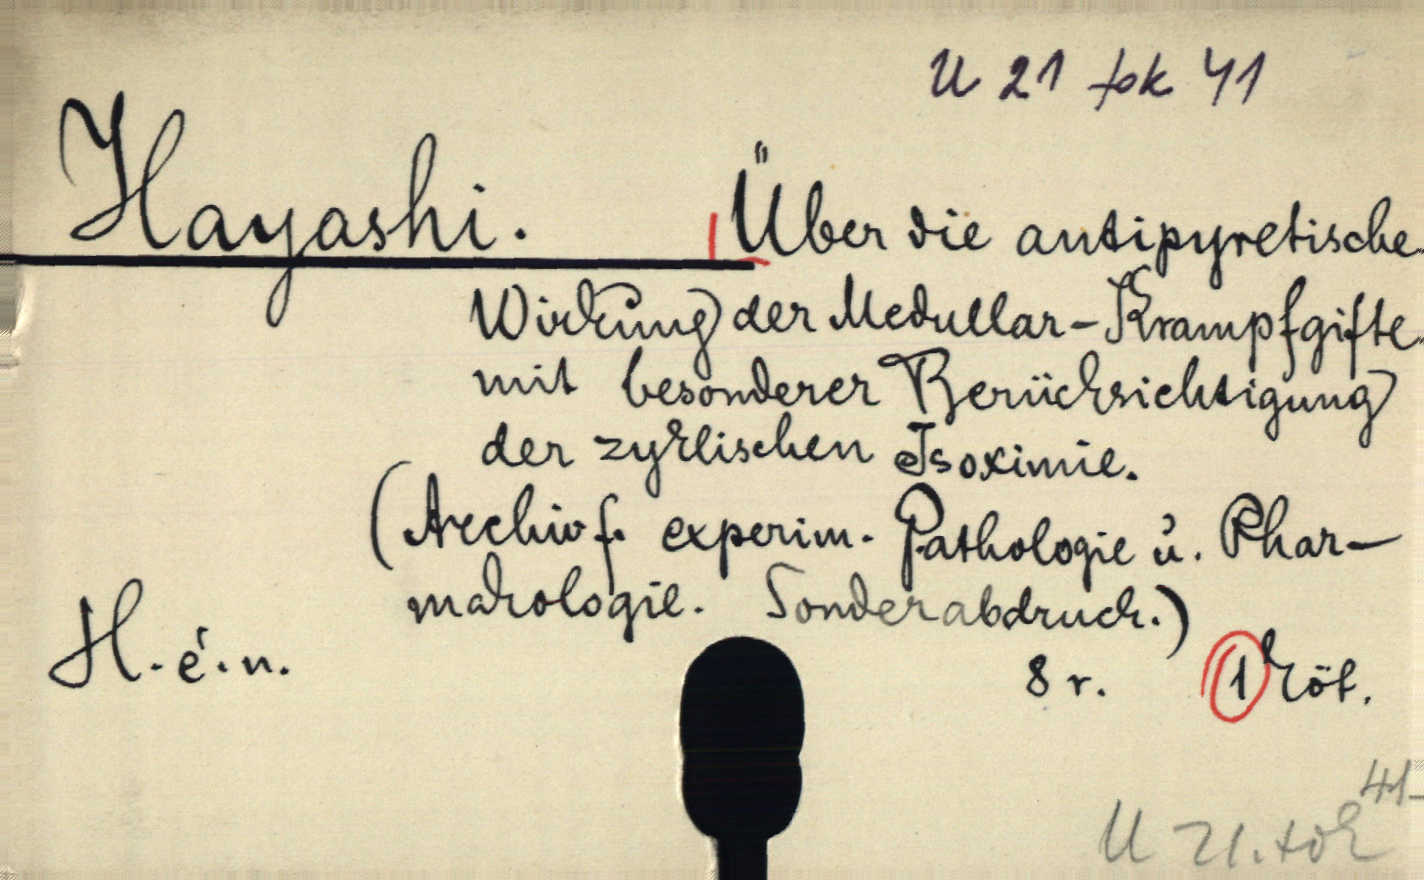 U 21 tok 41
Hayashi. Über die antipyretische
Wirkung der Medullar-Krampfgifte
mit besonderer Berücksichtigung
der zyklischen Isoximie.
(Archiv f. experim. Pathologie u. Phar-
makologie. Sonderabdruck.)
H. é. n. 8 r. 1 köt.
41
U 21. tok